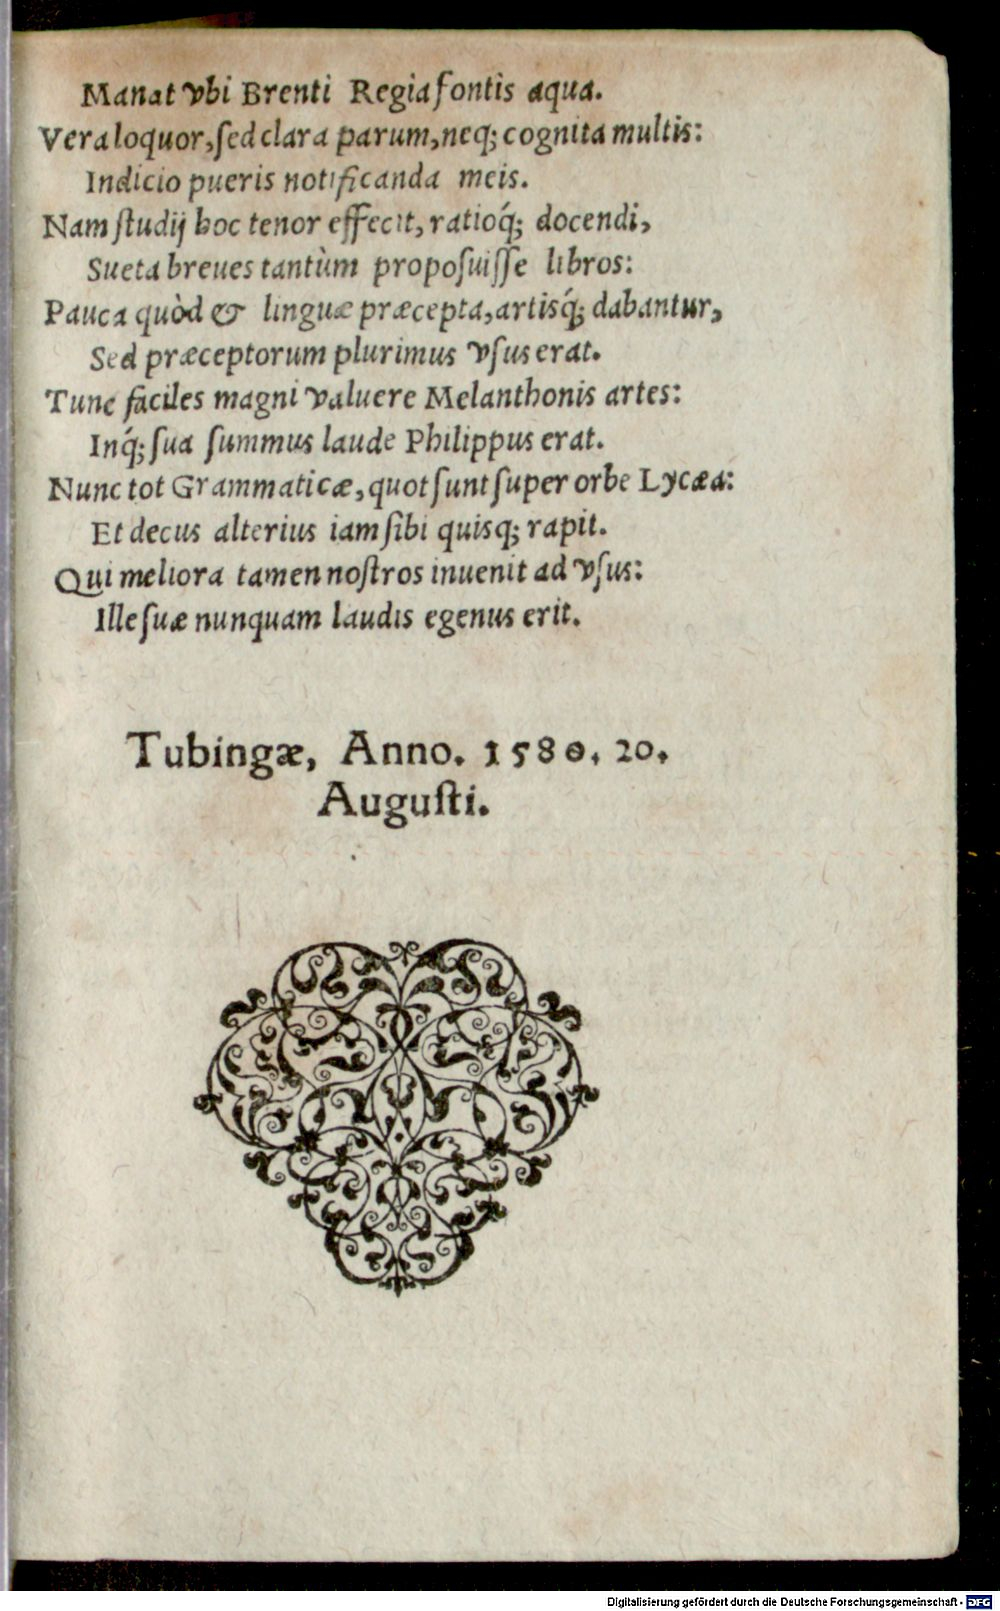 Manat vbi Brenti Regia fontis aqua.
Vera loquor, ſed clara parum, neq; cognita multis:
Indicio pueris notificanda meis.
Nam ſtudij hoc tenor effecit, ratioq́; docendi,
Sueta breues tantùm propoſuiſſe libros:
Pauca quòd & linguæ præcepta, artisq́; dabantur,
Sed præceptorum plurimus vſus erat.
Tunc faciles magni valuere Melanthonis artes:
Inq́; ſua ſummus laude Philippus erat.
Nunc tot Grammaticæ, quot ſunt ſuper orbe Lycæa:
Et decus alterius iam ſibi quisq; rapit.
Qui meliora tamen noſtros inuenit ad vſus:
Ille ſuæ nunquam laudis egenus erit.
Tubingæ, Anno. 1580. 20.
Auguſti.
Digitalisierung gefördert durch die Deutsche Forschungsgemeinschaft - DFG